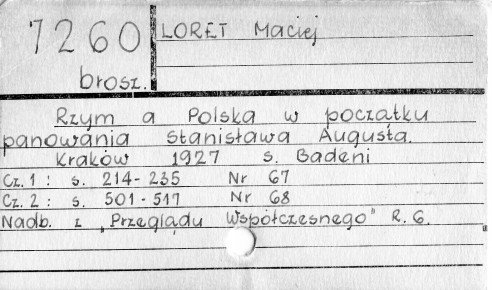 7260 LORET Maciej
brosz.
Rzym a Polska w początku
panowania Stanisława Augusta.
Kraków 1927 s. Badeni
Cz. 1 : s. 214-235 Nr 67
Cz. 2 : s. 501-517 Nr 68
Nadb. z „Przeglądu Współczesnego" R. 6.